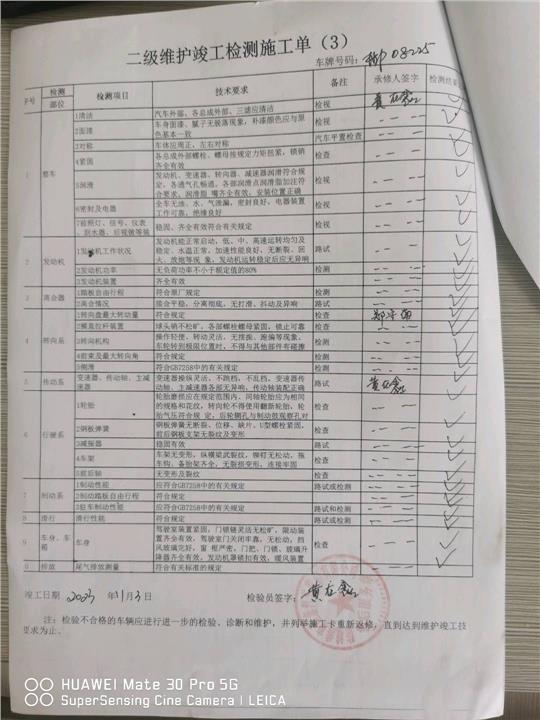 二级维护竣工检测施工单（3）
车牌号码: 08225
序号 检测部位 检测项目 技术要求 备注 承修人签字 检测结果
1 整车 1清洁 汽车外部、各总成外部、三滤应清洁 检视
2面漆 车身面漆、腻子无脱落现象，补漆颜色应与原色基本一致 检视
3对称 车体应周正，左右对称 汽车平置检查
4紧固 各总成外部螺栓、螺母按规定力矩扭紧，锁销齐全有效 检查
5润滑 发动机、变速器、转向器、减速器润滑符合规定，各通气孔畅通。各部润滑点润滑脂加注符合要求。润滑脂 嘴齐全有效；安装位置正确 检视
6密封及电器 全车无油、水、气泄漏，密封良好，电器装置工作可靠，绝缘良好 检视
7前照灯、信号、仪表、刮水器、后视镜等装 稳固、齐全有效符合有关规定 检视
2 发动机 1发动机工作状况 发动机能正常启动，低、中、高速运转均匀及稳定、水温正常，加速性能良好，无断裂、回火、放炮等现 象，发动机运转稳定后应无异响 路试
2发动机功率 无负荷功率不小于额定值的80% 检测
3发动机装置 齐全有效 检视
3 离合器 1踏板自由行程 符合原厂规定 检测
2离合情况 接合平稳，分离彻底，无打滑、抖动及异响 路试
4 转向系 1转向盘最大转动量 符合规定 检查
2横直拉杆装置 球头销不松旷，各部螺栓螺母紧固，锁止可靠 检查
3转向机构 操作轻便、转动灵活，无摆振、跑偏等现象，车轮转到极限位置时，不得与其他部件有碰擦 检测
4前束及最大转向角 符合规定 检测
5侧滑 符合GB7258中的有关规定 检测
5 传动系 变速器、传动轴、主减速器 变速器操纵灵活，不跳档，不乱档，变速器传动轴、主减速器各部无异响，传动轴装配正确 路试
6 行驶系 1轮胎 轮胎磨损应在规定范围内，同轴轮胎应为相同的规格和花纹，转向轮不得使用翻新轮胎，轮胎气压符合规 定，后轮辋孔与制动鼓观察孔对 检查
2钢板弹簧 钢板弹簧无断裂、位移、缺片，U型螺栓紧固，前后钢板支架无裂纹及变形 检查
3减振器 稳固有效 路试
4车架 车架无变形，纵横梁武裂纹，铆钉无松动，拖车钩，备胎架齐全，无裂损变形，连接牢固 检查
5前后轴 无变形及裂纹 检查
7 制动系 1制动性能 应符合GB7258中的有关规定 路试或检测
2制动踏板自由行程 符合规定 检查
3驻车制动性能 应符合GB7258中的有关规定 路试和检测
8 滑行 滑行性能 符合规定 路试或检测
9 车身、车箱 车身 驾驶室装置紧固，门锁链灵活无松旷，限动装置齐全有效，驾驶室门关闭牢靠，无松动，挡风玻璃完好，窗 框严密，门把、门锁、玻璃升降器齐全有效，发动机罩锁扣有效，暖风装置 检查
0 排放 尾气排放测量 符合有关标准的规定 检测
竣工日期 2023 年11月3日 检验员签字:
注：检验不合格的车辆应进行进一步的检验、诊断和维护，并列举施工卡重新返修，直到达到维护竣工技术要求为止.
HUAWEI Mate 30 Pro 5G
SuperSensing Cine Camera | LEICA